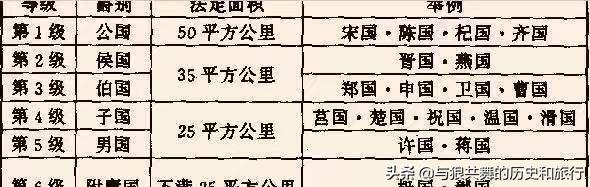 等级 爵别 法定面积 举例
第1级 公国 50平方公里 宋国·陈国·杞国·齐国
第2级 侯国 35平方公里 晋国·燕国
第3级 伯国 郑国·申国·卫国、曹国
第4级 子国 25平方公里 莒国·楚国·祝国·温国·滑国
第5级 男国 许国·蒋国
第6级 附庸国 不满25平方公里
头条 @与狼共舞的历史和旅行